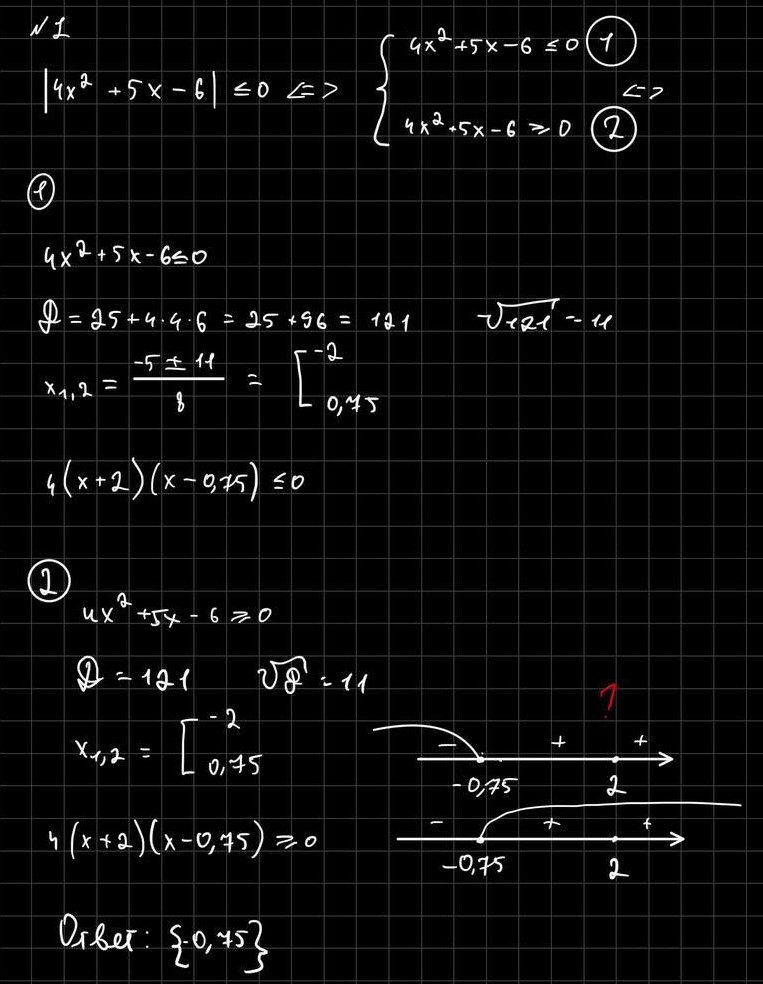 №1
|4x² + 5x − 6| ≤ 0 <=> { 4x² + 5x − 6 ≤ 0 ①
4x² + 5x − 6 ≥ 0 ② <=>
①
4x² + 5x − 6 ≤ 0
D = 25 + 4·4·6 = 25 + 96 = 121 √121 = 11
x₁,₂ = (−5 ± 11)/8 = [ −2
0,75
4(x+2)(x−0,75) ≤ 0
②
4x² + 5x − 6 ≥ 0
D = 121 √D = 11
x₁,₂ = [ −2
0,75
?
− + +
−0,75 2
4(x+2)(x−0,75) ≥ 0
− + +
−0,75 2
Ответ: {-0,75}